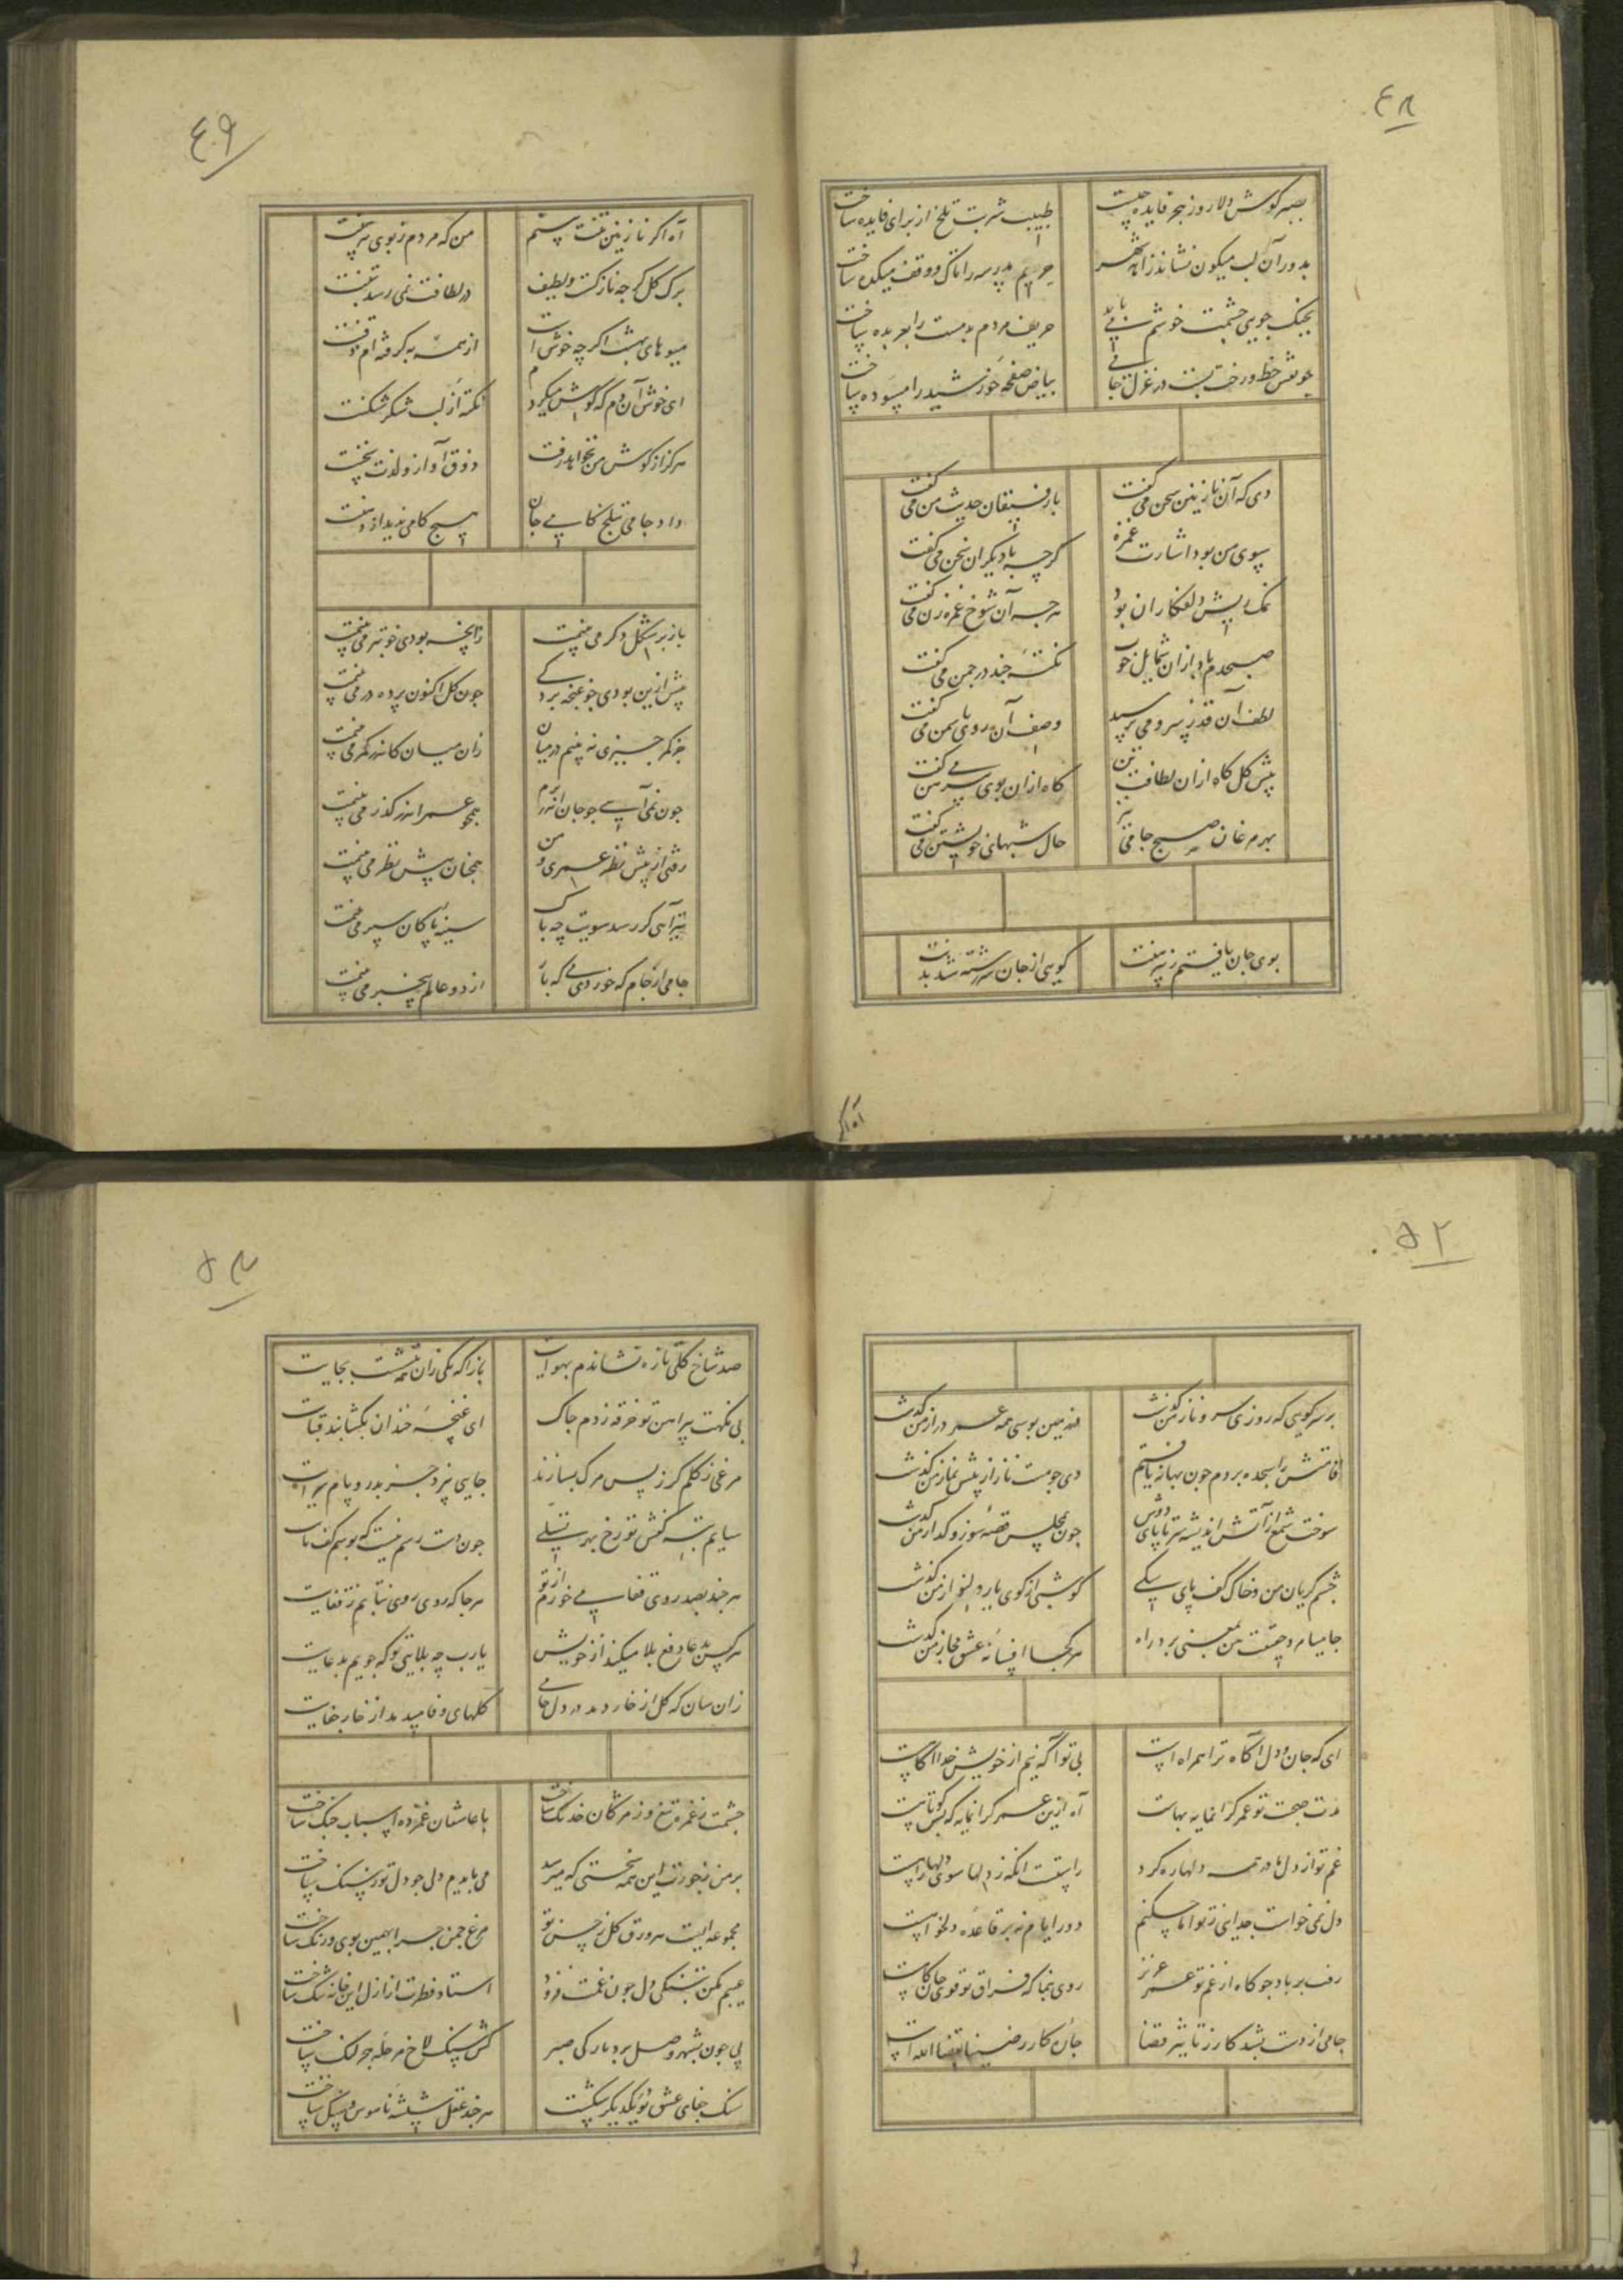 ۴۸
بصبر کوش دلا روز هجر فایده چیست طبیب شربت تلخ از برای فایده ساخت
بدور آن لب میکون نشاند زاهد شهر حریم مدرسه را تاک و وقف میکده ساخت
بجنک جویی چشمت خوشم حریف مردم بدمست را بعربده ساخت
چو نقش خط و رخت بست در غزل جامی بیاض صفحه خورشید را مسوده ساخت
دی که آن نازنین سخن می گفت با رفیقان حدیث من می گفت
سوی من بود اشارت غمزه گرچه با دیکران سخن می گفت
نمک ریش دلفکاران بود هرچه آن شوخ غمزه زن می گفت
صبحدم باد ازان شمایل خوب نکته چند در چمن می گفت
لطف آن قد ز سرو می پرسید وصف آن رو با سمن می گفت
پیش کل کاه ازان لطافت تن کاه ازان بوی پیرهن می گفت
بهر مرغان صبح جامی نیز حال شبهای خویشتن می گفت
بوی جان یافتم ز پیرهنت کویی از جان سرشته شد بدنت
آه اکر
۴۹
آه اکر نازنین تنت بینم من که مردم ز بوی پیرهنت
برک کل کرچه نازکست و لطیف در لطافت نمی رسد بتنت
میوهای بهشت اکرچه خوش است از همه به کرفته ام ذقنت
ای خوش آن دم که کوش میکردم نکته از لب شکر شکنت
هرکز از کوش من نخواهد رفت ذوق آواز و لذت سخنت
داد جامی بتلخ کامی جان هیچ کامی ندید از دهنت
باز بر شکل دکر می بینمت زانچه بودی خوبتر می بینمت
پیش ازین بودی چو غنچه پردگی چون کل اکنون پرده در می بینمت
جز کمر چیزی نه بینم در میان زان میان کاندر کمر می بینمت
چون نمی آیی چو جان اندر برم همچو عمر اندر کذر می بینمت
رفتی از پیش نظر عمری و من همچنان پیش نظر می بینمت
تیر آهی کر رسد سویت چه باک سینه پاکان سپر می بینمت
جامی از جام که خوردی می که باز از دو عالم بیخبر می بینمت
۵۲
بر سر کویی که روزی سرو ناز من کذشت در زمین بوسی همه عمر دراز من کذشت
قامتش را سجده بردم چون بهانه یافتم دی چو مست ناز از پیش نماز من کذشت
سوخت شمع از آتش اندیشه سر تا پای دوش چون بمجلس قصه سوز و کداز من کذشت
چشم کریان من و خاک کف پای سکی کو شبی از کوی یار دلنواز من کذشت
جامیا ره در حقیقت بین بمعنی برد راه هر کجا افسانه عشق مجاز من کذشت
ای که جان و دل آکاه ترا همراه است بی تو اکه نیم از خویش خدا اکاهست
مدت صحبت تو عمر کرانمایه بهاست آه ازین عمر کرانمایه که بس کوتاهست
غم تو از دل ما در همه دلها ره کرد راستست انکه ز دلها سوی دلها راهست
دل نمی خواست جدایی ز تو اما چکنم دور ایام نه بر قاعده دلخواهست
رفت بر باد چو کاه از غم تو عمر عزیز روی بنما که فراق تو قوی جان کاهست
جامی از دست بشد کار ز تاثیر قضا جان کار رضینا بقضاء الله است
۵۳
صد شاخ کلی تازه نشاندم بهوایت بازآ که یکی زان ننشست بجایت
بی نکهت پیراهن تو خرقه زدم چاک ای غنچه خندان بکشا بند قبایت
مرغی ز کلم کر ز پس مرک بسازند جایی نپرد جز بدر و بام سرایت
سایم بته کفش تو رخ بهر تسلی چون دست رسم نیست که بوسم کف پایت
هرچند بصد روی قفا می خورم از تو هر جا که روی روی نتابم ز قفایت
هرکس بدعا دفع بلا میکند از خویش یارب چه بلایی تو که جویم بدعایت
زان سان که کل از خار دمد در دل جامی کلهای وفا میدمد از خار جفایت
چشمت ز غمزه تیغ و ز مژکان خدنک ساخت با عاشقان غمزده اسباب جنک ساخت
بر من ز خویت این همه سختی که میرسد می بایدم دلی چو دل تو ز سنک ساخت
مجموعه ایست هر ورق کل ز حسن تو مرغ چمن چرا بهمین بوی و رنک ساخت
عیبم مکن بتنکی دل چون غمت فزود استاد فطرت از ازل این خانه تنک ساخت
پی چون بشهر وصل برد بارکی صبر کش سنک لاخ مرحله هجر لنک ساخت
سنک جفای عشق تو یکدیکر شکست هرچند عقل شیشه ناموس و ننک ساخت